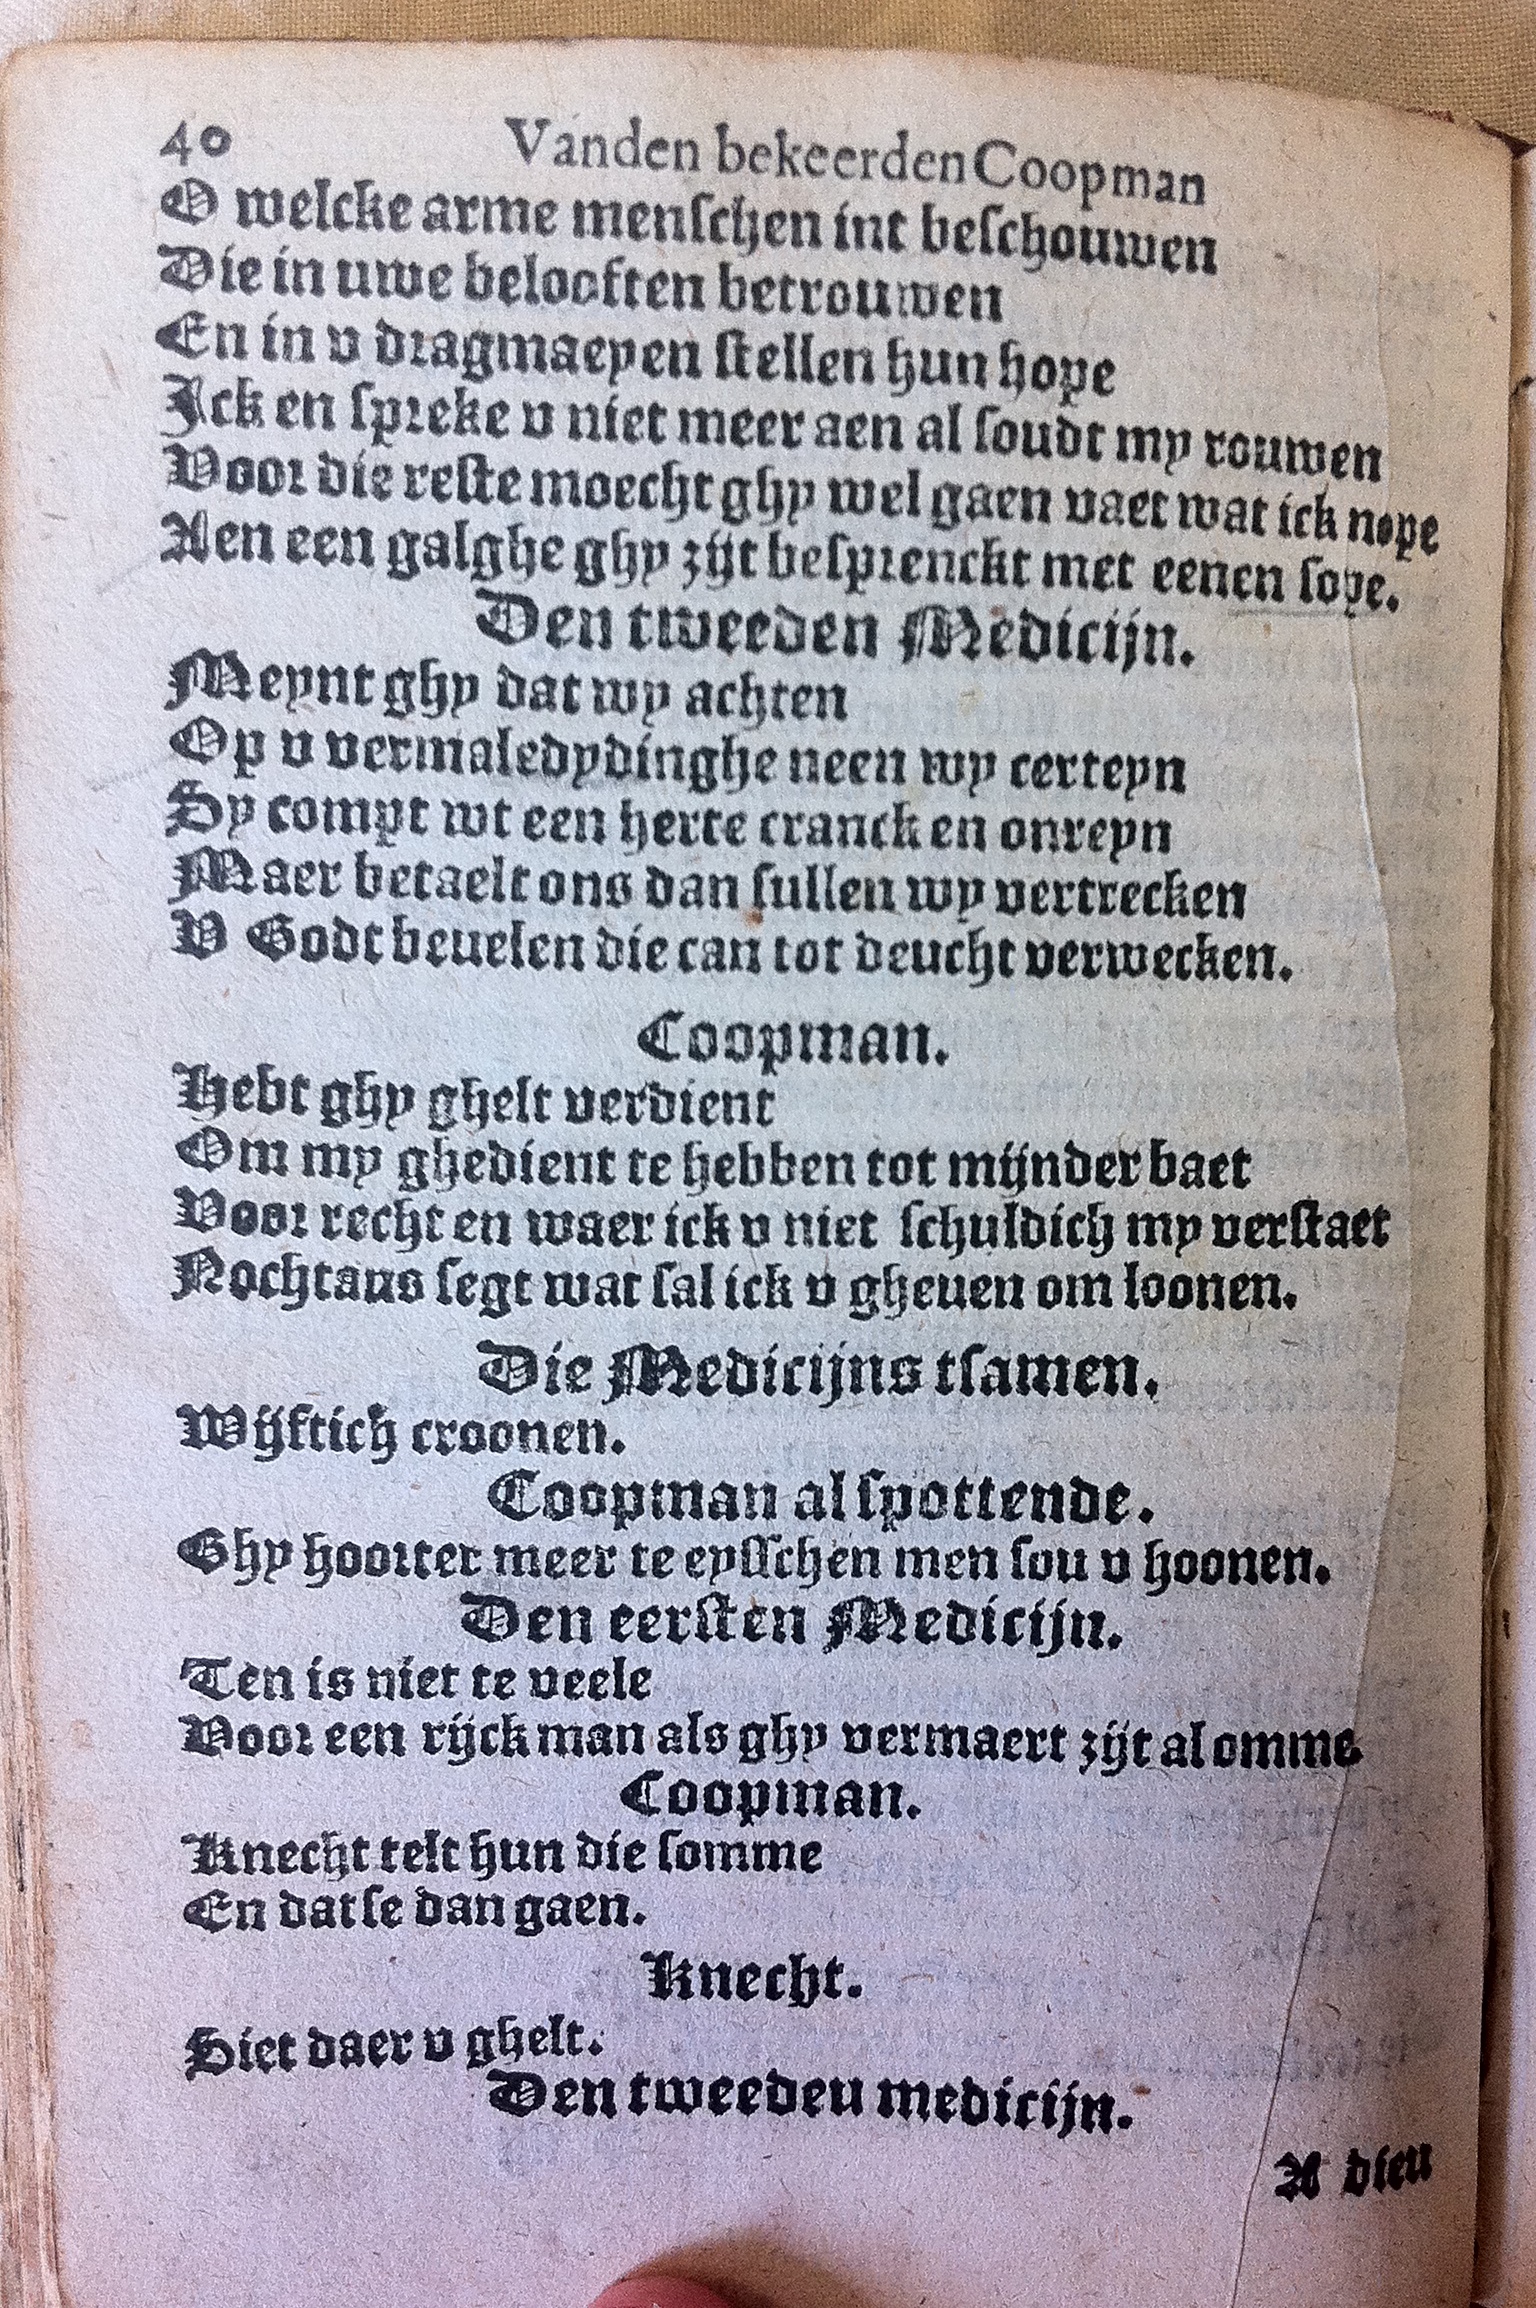 40 Vanden bekeerden Coopman
O welcke arme menschen int beschouwen
Die in uwe beloosten betrouwen
En in v dragmaeyen stellen hun hope
Ick en spreke v niet meer aen al soudt my rouwen
Voor die reste moecht ghy wel gaen vaet wat ick nope
Aen een galghe ghy zijt besprenckt met eenen sope.
Den tweeden Medicijn.
Meynt ghy dat wy achten
Op v vermaledydinghe neen wy certeyn
Sy compt wt een herte cranck en onreyn
Maer betaelt ons dan sullen wy vertrecken
V Godt beuelen die can tot deucht verwecken.
Coopman.
Hebt ghy ghelt verdient
Om my ghedient te hebben tot mijnder baet
Voor recht en waer ick v niet schuldich my verstaet
Nochtans segt wat sal ick v gheuen om loonen.
Die Medicijns tsamen.
Wijftich croonen.
Coopman al spottende.
Ghy hoorter meer te eysschen men sou v hoonen.
Den eersten Medicijn.
Ten is niet te veele
Voor een rijck man als ghy vermaert zijt al omme
Coopman.
Knecht telt hun die somme
En datse dan gaen.
Knecht.
Siet daer v ghelt.
Den tweeden medicijn.
A dieu